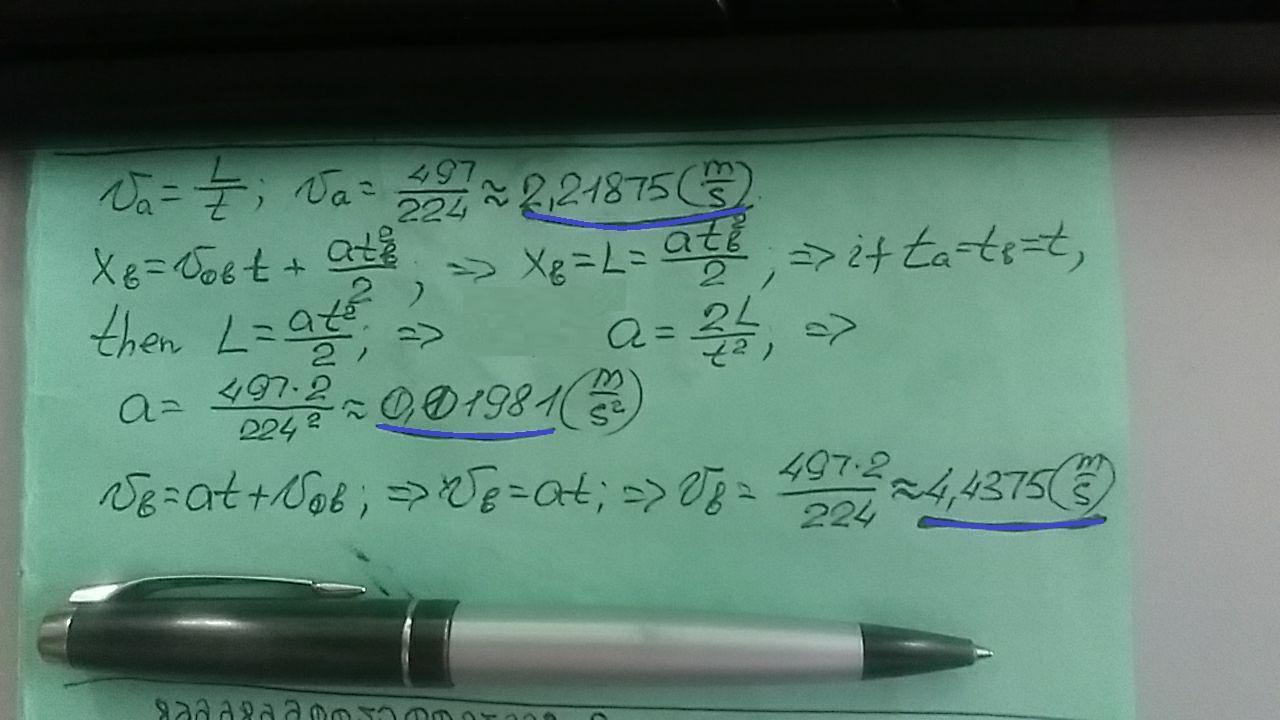 υa = L/t; υa = 497/224 ≈ 2,21875 (m/s).
xв = υ0в t + atв²/2; => xв = L = atв²/2; => if ta = tв = t,
then L = at²/2; => a = 2L/t²; =>
a = 497·2/224² ≈ 0,01981 (m/s²)
υв = at + υ0в; => υв = at; => υв = 497·2/224 ≈ 4,4375 (m/s)